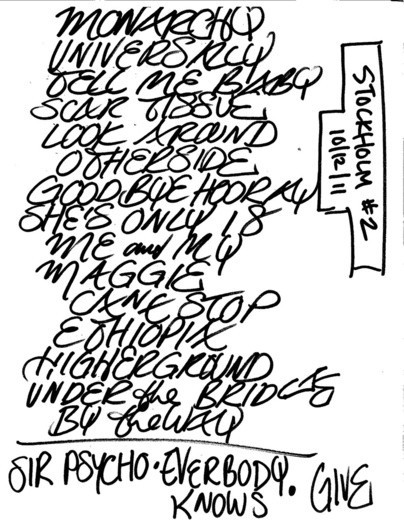 MONARCHY
UNIVERSALLY
TELL ME BABY
SCAR TISSUE
LOOK AROUND
OTHERSIDE
GOODBYE HOORAY
SHE'S ONLY 18
ME and MY
MAGGIE
CANT STOP
ETHIOPIA
HIGHERGROUND
UNDER the BRIDGE
BY the WAY
SIR PSYCHO · EVERBODY. GIVE
KNOWS
STOCKHOLM #2
10/12/11